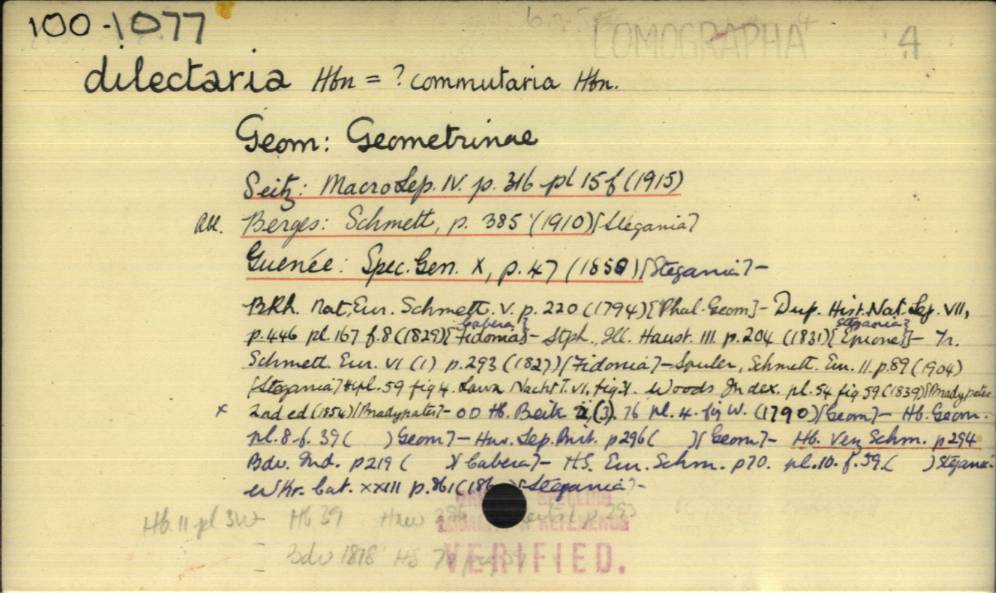 100-1077
LOMOGRAPHA 4
dilectaria Hbn = ? commutaria Hbn.
Geom: Geometrinae
Seitz: Macro Lep. IV. p. 316 pl 15 f (1915)
Berges: Schmett, p. 385 (1910) [Stegania]
Guenée: Spec. Gen. X, p. 47 (1858) [Stegania] -
Bkh. Nat. Eur. Schmett. V. p. 220 (1794) [Phal-Geom] - Dup. Hist. Nat. Lep. VII,
Cabera] Stegania]
p. 446 pl. 167 f. 8 (1829) [Fidonia] - Stph. Ill. Haust. III. p. 204 (1831) [Epione] - Tr.
Schmett. Eur. VI (1) p. 293 (1827) [Fidonia] - Spuler, Schmett. Eur. II. p. 89 (1904)
[Stegania] pl. 59 fig 4. VI, fig. Woods Index. pl. 54 fig 59 (1839) [Bradypetes
x 2nd ed (1854) [Bradypetes] - Hb. Beitr 2 (3). 76 pl. 4. fig W. (1790) [Geom] - Hb. Geom.
pl. 8 f. 39 ( ) Geom] - Haw. Lep. Brit. p 296 ( ) [Geom] - Hb. Verz Schm. p 294
Bdv. Ind. p 219 ( ) [Cabera] - HS. Eur. Schm. p 70. pl. 10. f. 59. ( ) Stegania
Wkr. Cat. XXIII p. 861 (186 ) [Stegania] -
Hb. II pl 3W Hb 39 Haw 296 p. 293
Bdv 1818 HS 7
VERIFIED.